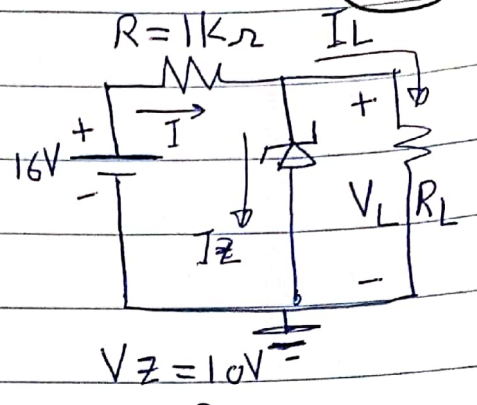 R=1KΩ
IL
+
I
+
16V
-
IZ
VL
RL
-
VZ=10V